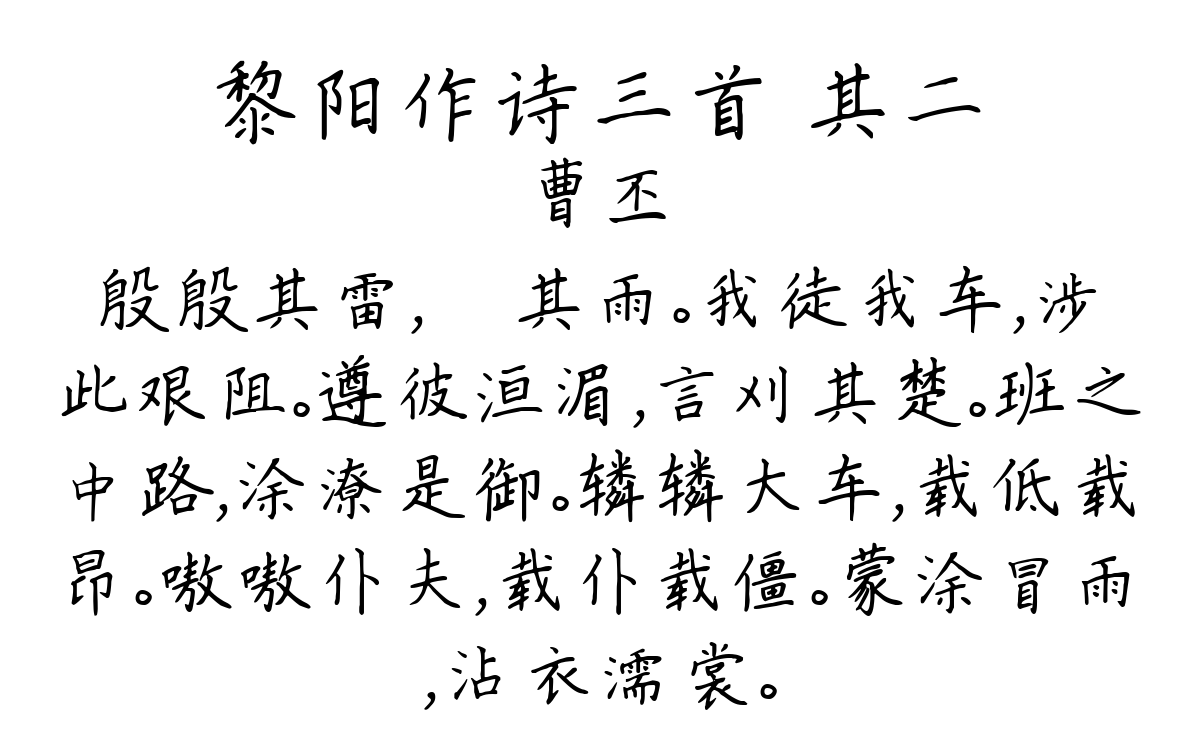 黎阳作诗三首 其二
曹丕
殷殷其雷， 其雨。我徒我车,涉
此艰阻。遵彼洹湄,言刈其楚。班之
中路,涂潦是御。辚辚大车,载低载
昂。嗷嗷仆夫,载仆载僵。蒙涂冒雨
,沾衣濡裳。